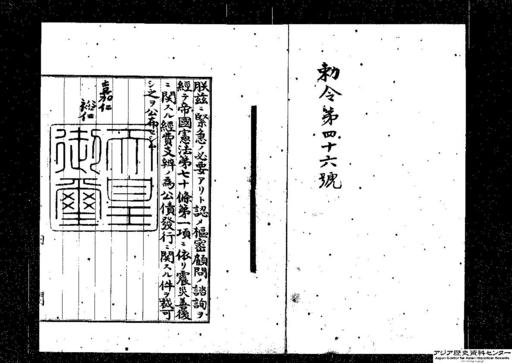 勅令第四十六號
朕茲ニ緊急ノ必要アリト認メ樞密顧問ノ諮詢ヲ
經テ帝國憲法第七十條第一項ニ依リ震災善後
ニ關スル經費支辨ノ爲公債發行ニ關スル件ヲ裁可
シ之ヲ公布セシム
嘉仁
裕仁
天皇
御璽
アジア歴史資料センター
Japan Center for Asian Historical Records